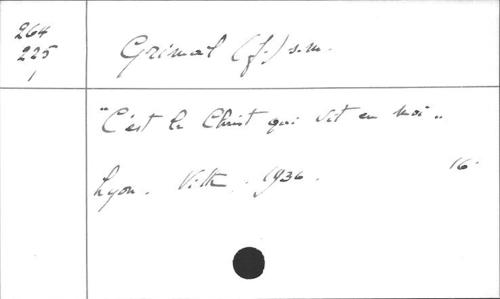 264
225
1
Grimal (J.) s.m.
"C'est le Christ qui vit en moi"
Lyon. Vitte. 1936. 16°